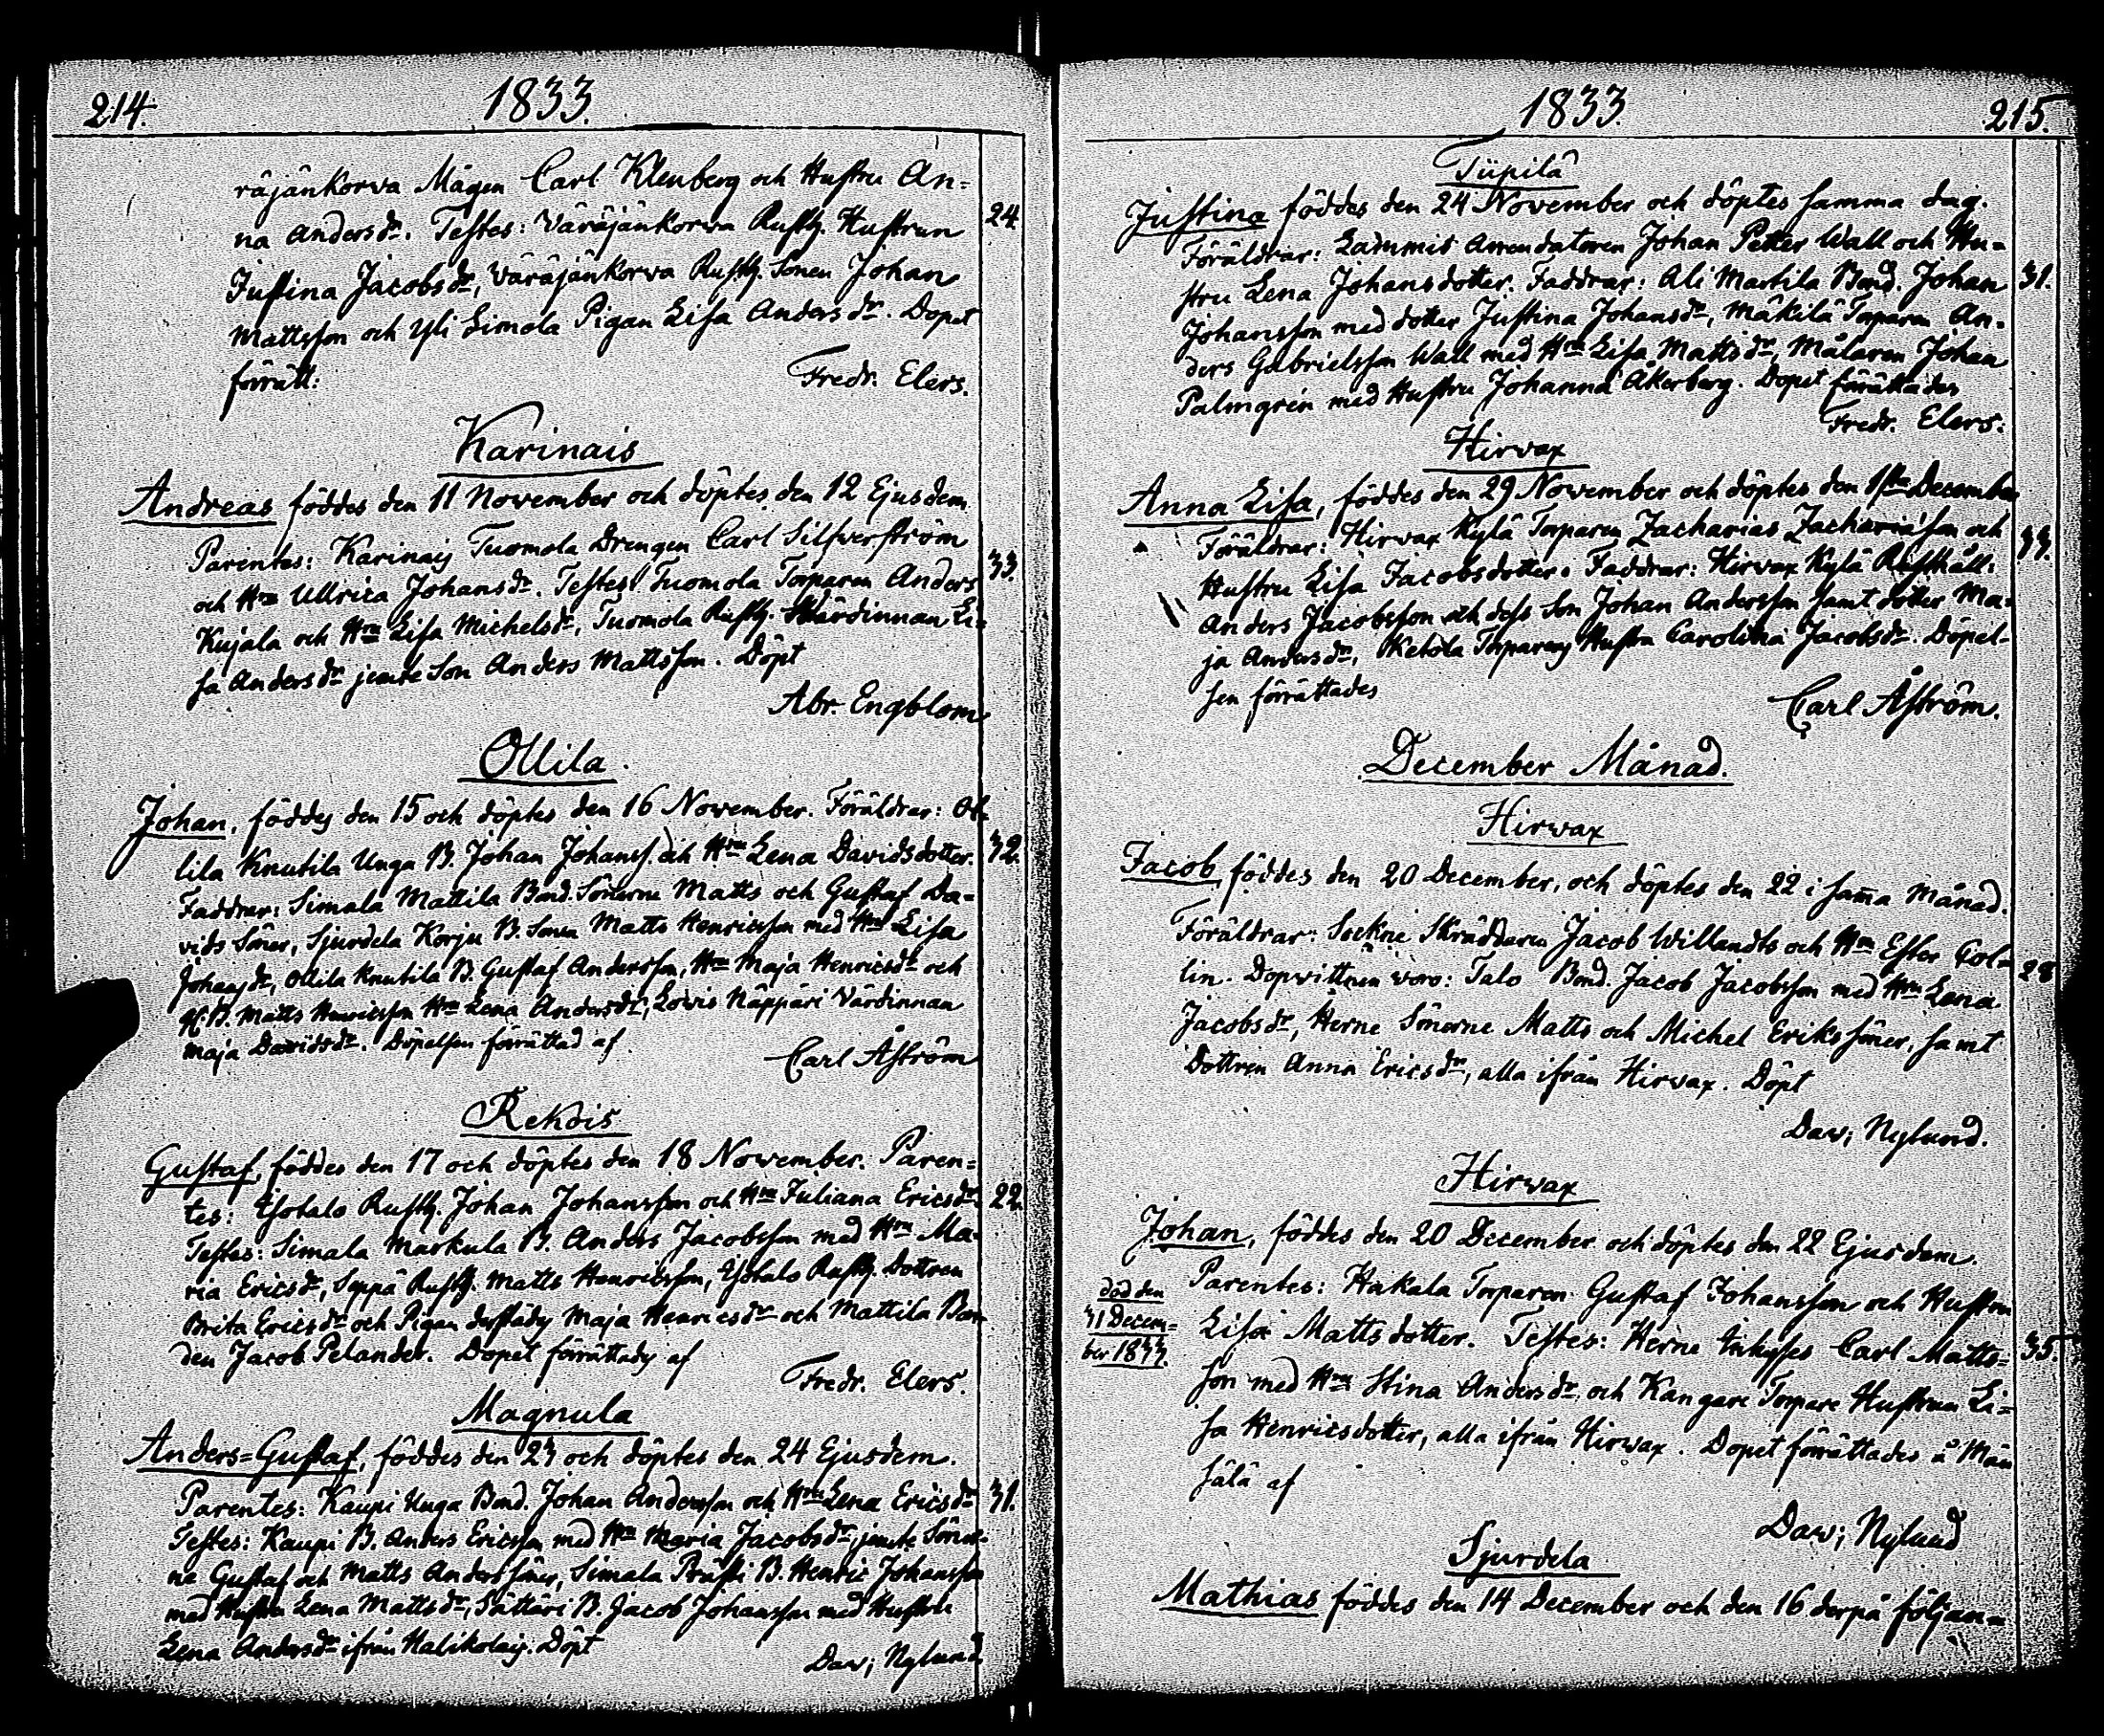 214.
1833.
räjänkorva Mågen Carl Klenberg och Hustru An=
na Andersdr. Testes: Väräjänkorwa Rusth. Hustrun
24
Justina Jacobsdr, Väräjänkorva Rusth. Sonen Johan
Mattsson och Yli Simola Pigan Lisa Andersdr. Dopet
förrätt:
Fredr. Elers.
Karinais
Andreas föddes den 11 November och döptes den 12 Ejusdem
Parentes: Karinais Tuomola Drengen Carl Silfwerström
33.
och Hru Ullrica Johansdr. Testes: Tuomola Torparen Anders
Kujala och Hru Lisa Michelsdr, Tuomola Rusth. Wärdinnan Li=
sa Andersdr jemte Son Anders Mattsson. Döpt
Abr. Engblom
Ollila
Johan, föddes den 15 och döptes den 16 November. Föräldrar: Ol=
lila Knutila Unga B. Johan Johanss. och Hru Lena Davidsdotter.
32.
Faddrar: Simala Mattila Bond. Sönerne Matts och Gustaf Da=
vids Söner, Sjurdela Korju B. Sonen Matts Henricsson med Hru Lisa
Johansdr, Ollila Knutila B. Gustaf Andersson, Hru Maja Henricsdr och
B. Matts Henricsson Hru Lena Andersdr, Näppäri Värdinnan
Maja Davidsdr. Döpelsen förrättad af
Carl Åström
Rekois
Gustaf, föddes den 17 och döptes den 18 November. Paren=
tes: Yhotalo Rusth. Johan Johansson och Hru Juliana Ericsdr
22.
Testes: Simala Markula B. Anders Jacobsson med Hru Ma=
ria Ericsdr, Seppä Rusth. Matts Henricsson, Yhotalo Rusth. Dottren
Brita Ericsdr och Pigan derstädes Maja Henricsdr och Mattila Bon=
den Jacob Pelander. Dopet förrättades af
Fredr. Elers.
Magnula
Anders=Gustaf, föddes den 23 och döptes den 24 Ejusdem.
Parentes: Kaupi Unga Bond. Johan Andersson och Hru Lena Ericsdr
31.
Testes: Kaupi B. Anders Ericsson med Hru Maria Jacobsdr jemte Söner=
ne Gustaf och Matts Anders Söner, Simala Prusti B. Henric Johansson
med Hustru Lena Mattsdr, Sättäri B. Jacob Johansson med Hustru
Lena Andersdr ifrån Halikolais. Döpt
Dav; Nylund
1833.
215.
Tiipilä
Justina föddes den 24 November och döptes samma dag.
Föräldrar: Arrendatoren Johan Petter Wall och Hu=
stru Lena Johansdotter. Faddrar: Ali Martila Bond. Johan
31.
Johansson med dotter Justina Johansdr, Mäkilä Torparen An=
ders Gabrielsson Wall med Hru Lisa Mattsdr, Målaren Johan
Palmgrén med Hustru Johanna Åkerberg. Dopet förrättades
Fredr. Elers.
Hirvax
Anna Lisa, föddes den 29 November och döptes den 1sta December
Föräldrar: Hirvax Kylä Torparen Zacharias Zachariæson och
33.
Hustru Lisa Jacobsdotter. Faddrar: Hirvax Kylä Rusthåll.
Anders Jacobsson och dess Son Johan Andersson samt dotter Ma=
ja Andersdr, Ketola Torparens Hustru Carolina Jacobsdr. Döpel=
sen förrättades
Carl Åström.
December Månad.
Hirwax
Jacob, föddes den 20 December, och döptes den 22 i sam̄a Månad.
Föräldrar: Sockne Skräddaren Jacob Willandts och Hru Ester Col=
28
lin. Dopvittnen woro: Talo Bond. Jacob Jacobsson med Hru Lena
Jacobsdr, Herne Sönerne Matts och Michel Eriks Söner, samt
Dottren Anna Ericsdr, alla ifrån Hirvax. Döpt
Dav; Nylund.
Hirvax
Johan, föddes den 20 December och döptes den 22 Ejusdem.
död den
31 Decem=
ber 1833.
Parentes: Hakala Torparen Gustaf Johansson och Hustru
Lisa Mattsdotter. Testes: Herne Inhyses Carl Matts=
35.
son med Hru Stina Andersdr och Kangare Torpare Hustrun Li=
sa Henricsdotter, alla ifrån Hirvax. Dopet förrättades å Män
sälä af
Dav; Nylund
Sjurdela
Mathias föddes den 14 December och den 16 derpå följan=